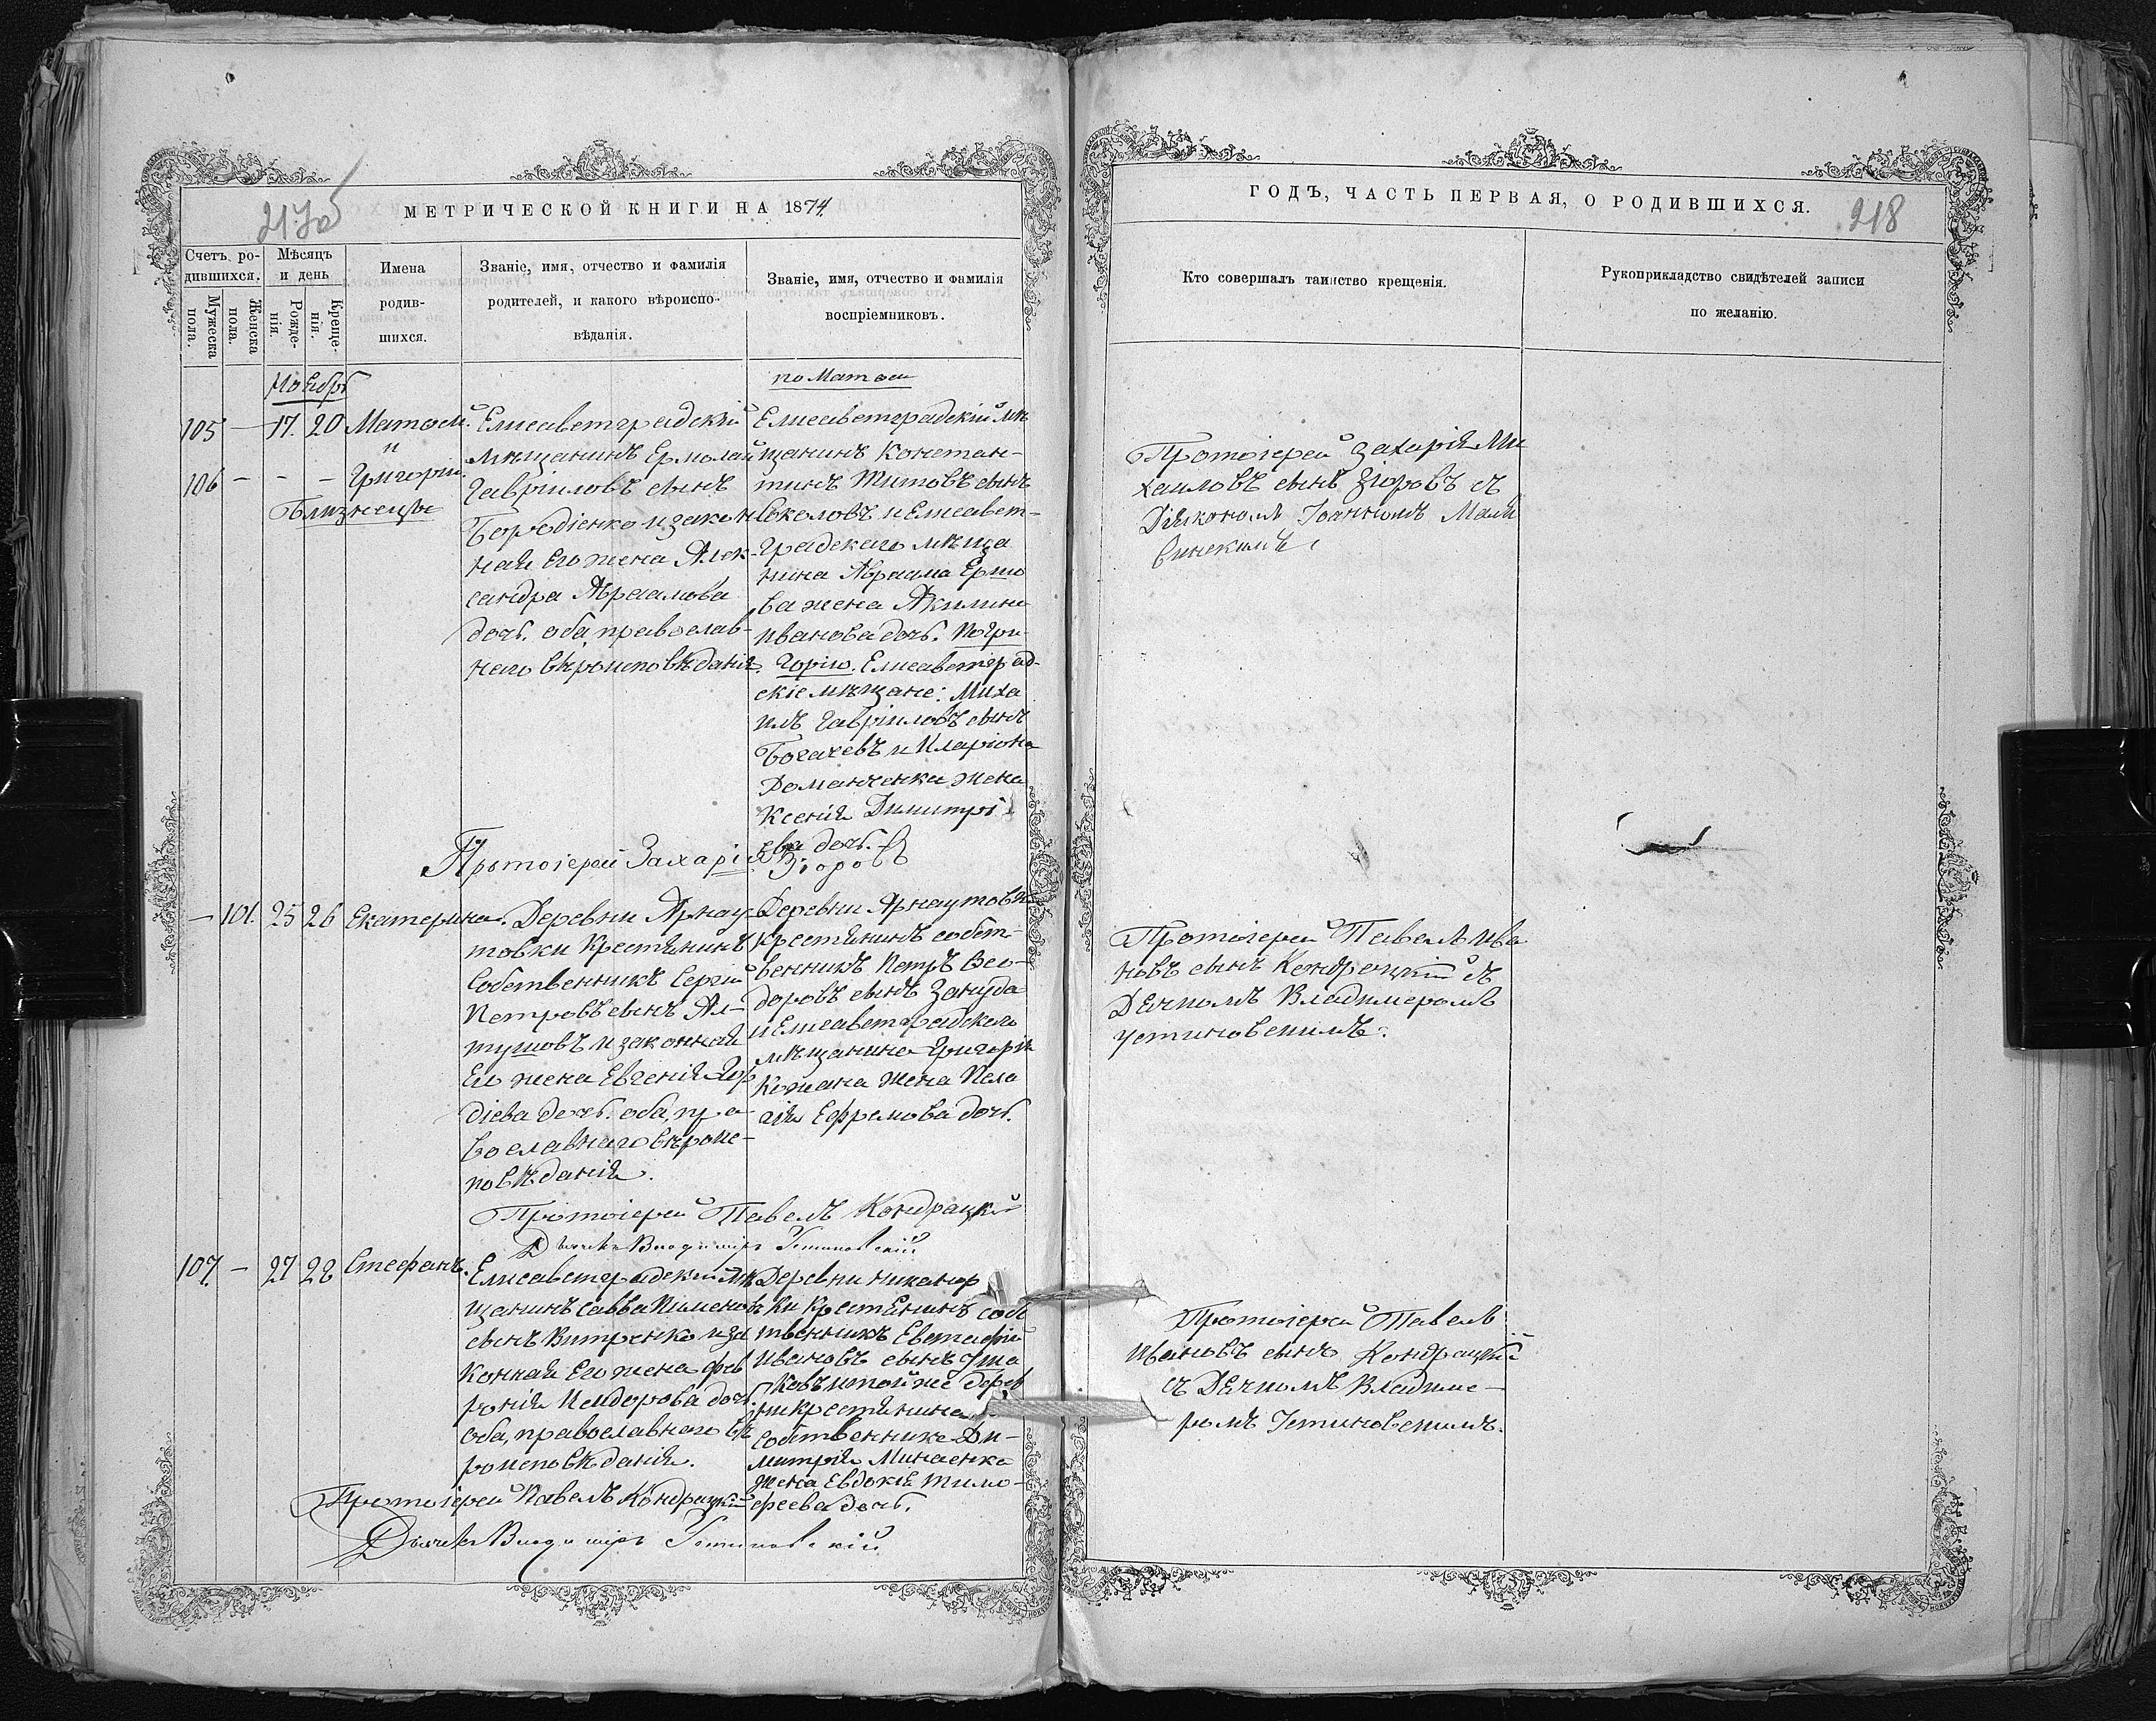 217об
МЕТРИЧЕСКОЙ КНИГИ НА 1874
Счетъ ро-
дившихся.
Мужеска
пола.
Женска
пола.
Мѣсяцъ
и день
Рожде-
нія.
Креще-
нія.
Имена
родив-
шихся.
Званіе, имя, отчество и фамилія
родителей, и какого вѣроиспо-
вѣданія.
Званіе, имя, отчество и фамилія
воспріемниковъ.
Ноябрь
105 — 17. 20 Матѳей.
и
106 — — — Григорій.
Близнецы
Елисаветградскій
мѣщанинъ Ермолай
Гавріиловъ сынъ
Бородіенко и закон
ная его жена Алек-
сандра Авраамова
дочь. оба, православ-
наго вѣроисповѣданія.
по Матѳеи
Елисаветградскій мѣ
щанинъ Констан-
тинъ Титовъ сынъ
Соколовъ и Елисавет-
градскаго мѣща
нина Авраама
ва жена Акилина
Иванова дочь. по Гри-
горію. Елисаветград-
скіе мѣщане: Миха
илъ Гавріиловъ сынъ
Богачевъ и Иларіона
Доманченка жена
Ксенія Димитрі
ева дочь.
Протоіерей Захарія Зіоровъ
— 101. 25 26 Екатерина.
Деревни Арнау-
товки Крестьянинъ
Собственникъ Сергій
Петровъ сынъ Ал-
туховъ и законная
Его жена Евгенія Гор
діева дочь. оба, пра-
вославнаго вѣроис-
повѣданія.
Деревни Арнаутовки
крестьянинъ собст-
венникъ Петръ Ѳео-
доровъ сынъ Закуда
и Елисаветградскаго
мѣщанина Григорія
Кожана жена Пела
гія Ефремова дочь.
Протоіерей Павелъ Кондрацкій
Дьячекъ Владиміръ Устиновскій
107 — 27 28 Стефанъ.
Елисаветградскій мѣ
щанинъ Савва Пименовъ
сынъ Витренко и за
конная Его жена Фев
ронія Исидорова дочь.
оба, православнаго вѣ
роисповѣданія.
Деревни Никанор
ки Крестьянинъ собс
твенникъ Евстафій
Ивановъ сынъ Уша
ковъ и той же дерев
ни крестьянина
собственника Ди-
митрія Минаенка
жена Евдокія Тимо-
феева дочь.
Протоіерей Павелъ Кондрацкій
Дьячекъ Владиміръ Устиновскій
ГОДЪ, ЧАСТЬ ПЕРВАЯ, О РОДИВШИХСЯ.
218
Кто совершалъ таинство крещенія.
Рукоприкладство свидѣтелей записи
по желанію.
Протоіерей Захарія Ми
хаиловъ сынъ Зіоровъ съ
Діякономъ Іоанномъ Мали
Протоіерей Павелъ Ива
новъ сынъ Кондрацкій съ
Дячкомъ Владимеромъ
Устиновскимъ.
Протоіерей Павелъ
Ивановъ сынъ Кондрацкій
съ Дячкомъ Владиме-
ромъ Устиновскимъ.